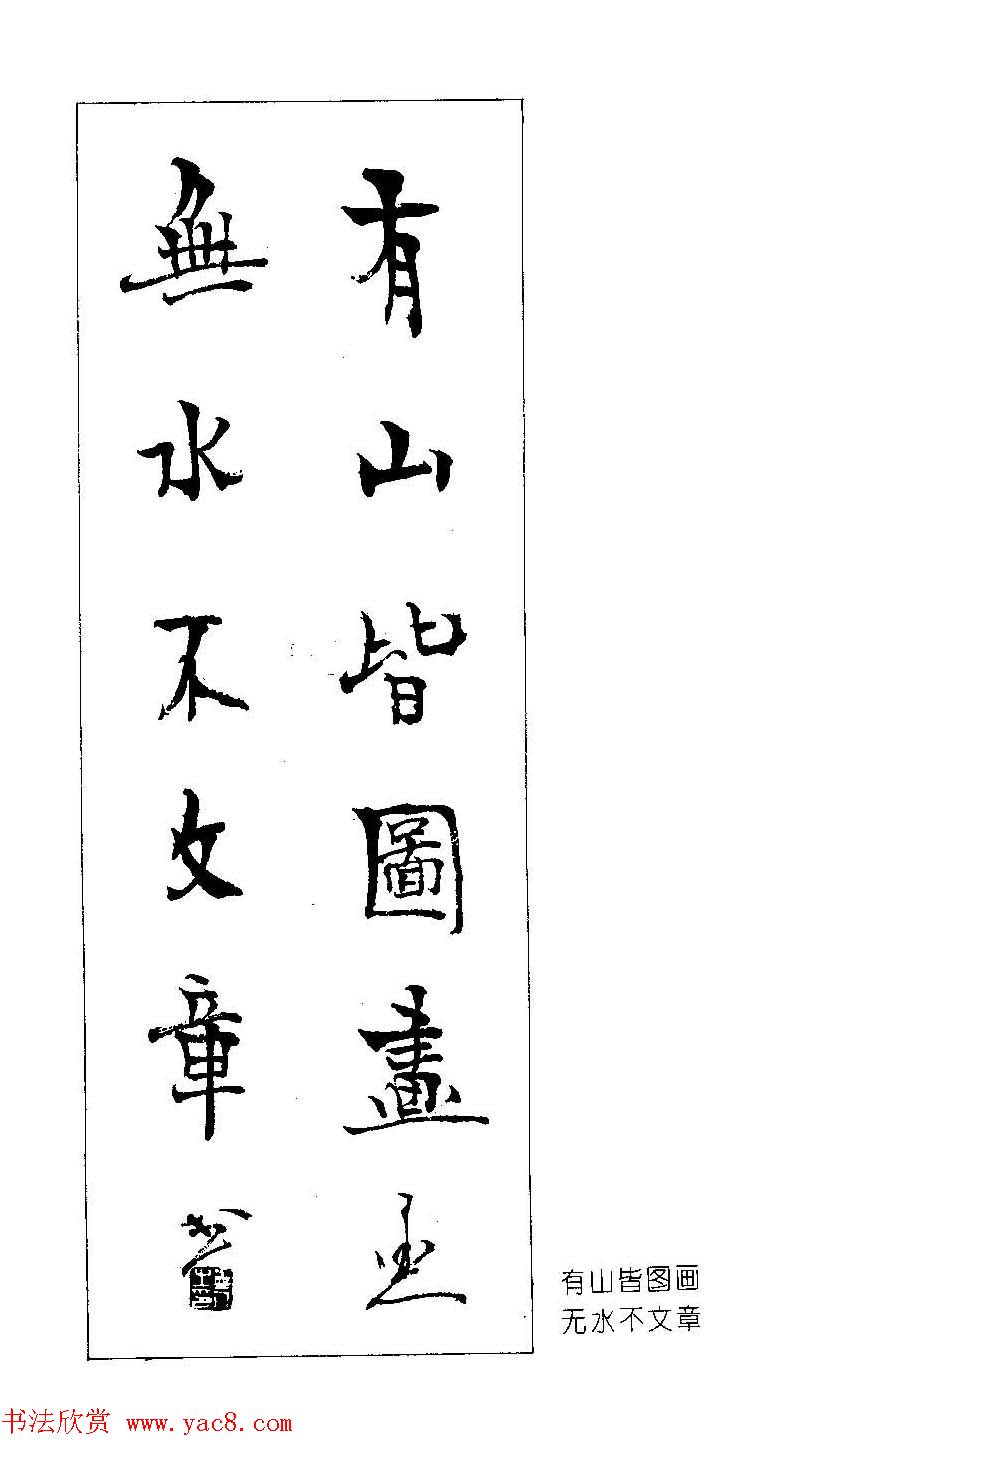 有山皆圖畫
無水不文章
有山皆图画
无水不文章
书法欣赏 www.yac8.com